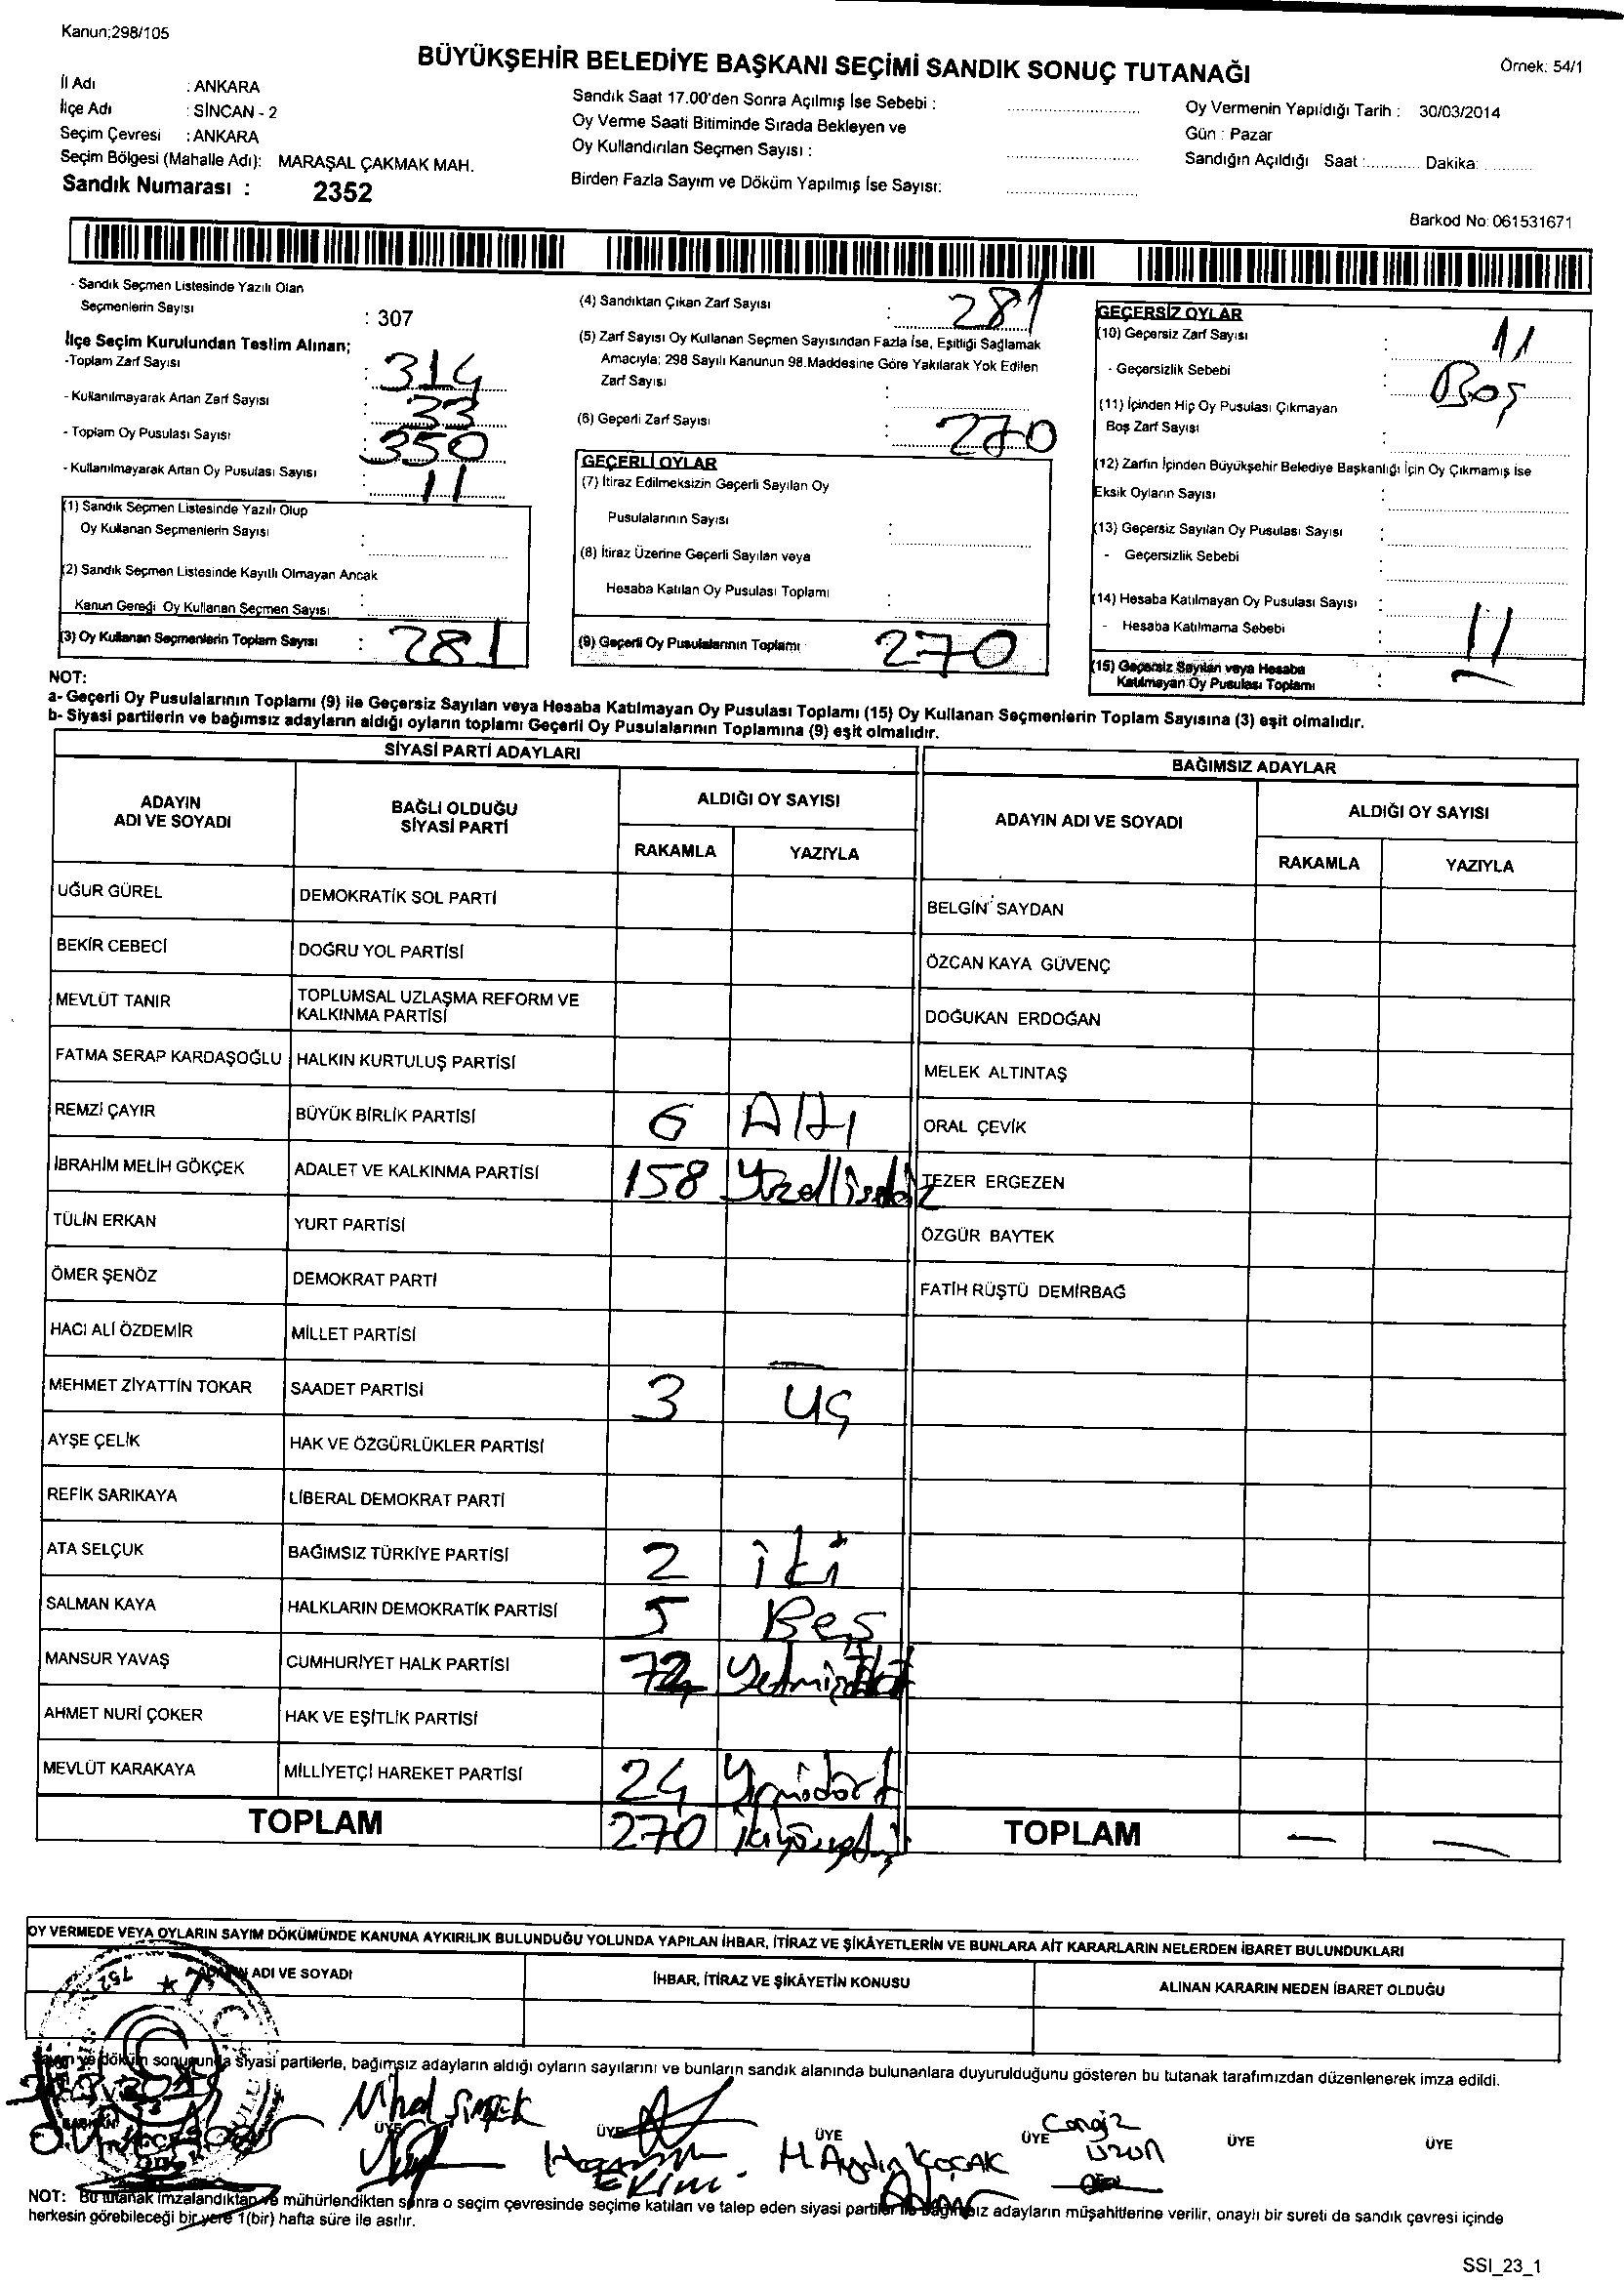 Kanun;298/105
BÜYÜKŞEHİR BELEDİYE BAŞKANI SEÇİMİ SANDIK SONUÇ TUTANAĞI
Örnek: 54/1
İl Adı : ANKARA
İlçe Adı : SİNCAN - 2
Seçim Çevresi : ANKARA
Seçim Bölgesi (Mahalle Adı): MARAŞAL ÇAKMAK MAH.
Sandık Numarası : 2352
Sandık Saat 17.00'den Sonra Açılmış İse Sebebi :
Oy Verme Saati Bitiminde Sırada Bekleyen ve
Oy Kullandırılan Seçmen Sayısı :
Birden Fazla Sayım ve Döküm Yapılmış İse Sayısı:
Oy Vermenin Yapıldığı Tarih : 30/03/2014
Gün : Pazar
Sandığın Açıldığı Saat :............ Dakika: ............
Barkod No: 061531671
- Sandık Seçmen Listesinde Yazılı Olan
Seçmenlerin Sayısı : 307
İlçe Seçim Kurulundan Teslim Alınan;
-Toplam Zarf Sayısı : 314
- Kullanılmayarak Artan Zarf Sayısı : 33
- Toplam Oy Pusulası Sayısı : 350
- Kullanılmayarak Artan Oy Pusulası Sayısı : 11
(1) Sandık Seçmen Listesinde Yazılı Olup
Oy Kullanan Seçmenlerin Sayısı :
(2) Sandık Seçmen Listesinde Kayıtlı Olmayan Ancak
Kanun Gereği Oy Kullanan Seçmen Sayısı :
(3) Oy Kullanan Seçmenlerin Toplam Sayısı : 281
(4) Sandıktan Çıkan Zarf Sayısı : 281
(5) Zarf Sayısı Oy Kullanan Seçmen Sayısından Fazla İse, Eşitliği Sağlamak
Amacıyla; 298 Sayılı Kanunun 98.Maddesine Göre Yakılarak Yok Edilen
Zarf Sayısı :
(6) Geçerli Zarf Sayısı : 270
GEÇERLİ OYLAR
(7) İtiraz Edilmeksizin Geçerli Sayılan Oy
Pusulalarının Sayısı :
(8) İtiraz Üzerine Geçerli Sayılan veya
Hesaba Katılan Oy Pusulası Toplamı :
(9) Geçerli Oy Pusulalarının Toplamı : 270
GEÇERSİZ OYLAR
(10) Geçersiz Zarf Sayısı : 11
- Geçersizlik Sebebi : Boş
(11) İçinden Hiç Oy Pusulası Çıkmayan
Boş Zarf Sayısı :
(12) Zarfın İçinden Büyükşehir Belediye Başkanlığı İçin Oy Çıkmamış İse
Eksik Oyların Sayısı :
(13) Geçersiz Sayılan Oy Pusulası Sayısı :
- Geçersizlik Sebebi :
(14) Hesaba Katılmayan Oy Pusulası Sayısı :
- Hesaba Katılmama Sebebi :
(15) Geçersiz Sayılan veya Hesaba
Katılmayan Oy Pusulası Toplamı : 11
NOT:
a- Geçerli Oy Pusulalarının Toplamı (9) ile Geçersiz Sayılan veya Hesaba Katılmayan Oy Pusulası Toplamı (15) Oy Kullanan Seçmenlerin Toplam Sayısına (3) eşit olmalıdır.
b- Siyasi partilerin ve bağımsız adayların aldığı oyların toplamı Geçerli Oy Pusulalarının Toplamına (9) eşit olmalıdır.
SİYASİ PARTİ ADAYLARI
ADAYIN ADI VE SOYADI
BAĞLI OLDUĞU SİYASİ PARTİ
ALDIĞI OY SAYISI
RAKAMLA YAZIYLA
UĞUR GÜREL DEMOKRATİK SOL PARTİ
BEKİR CEBECİ DOĞRU YOL PARTİSİ
MEVLÜT TANIR TOPLUMSAL UZLAŞMA REFORM VE KALKINMA PARTİSİ
FATMA SERAP KARDAŞOĞLU HALKIN KURTULUŞ PARTİSİ
REMZİ ÇAYIR BÜYÜK BİRLİK PARTİSİ 6 Altı
İBRAHİM MELİH GÖKÇEK ADALET VE KALKINMA PARTİSİ 158 Yüzellisekiz
TÜLİN ERKAN YURT PARTİSİ
ÖMER ŞENÖZ DEMOKRAT PARTİ
HACI ALİ ÖZDEMİR MİLLET PARTİSİ
MEHMET ZİYATTİN TOKAR SAADET PARTİSİ 3 üç
AYŞE ÇELİK HAK VE ÖZGÜRLÜKLER PARTİSİ
REFİK SARIKAYA LİBERAL DEMOKRAT PARTİ
ATA SELÇUK BAĞIMSIZ TÜRKİYE PARTİSİ 2 iki
SALMAN KAYA HALKLARIN DEMOKRATİK PARTİSİ 5 Beş
MANSUR YAVAŞ CUMHURİYET HALK PARTİSİ 72 Yetmişiki
AHMET NURİ ÇOKER HAK VE EŞİTLİK PARTİSİ
MEVLÜT KARAKAYA MİLLİYETÇİ HAREKET PARTİSİ 24 Yirmidört
TOPLAM 270 ikiyüzyetmiş
BAĞIMSIZ ADAYLAR
ADAYIN ADI VE SOYADI
ALDIĞI OY SAYISI
RAKAMLA YAZIYLA
BELGİN SAYDAN
ÖZCAN KAYA GÜVENÇ
DOĞUKAN ERDOĞAN
MELEK ALTINTAŞ
ORAL ÇEVİK
TEZER ERGEZEN
ÖZGÜR BAYTEK
FATİH RÜŞTÜ DEMİRBAĞ
TOPLAM — —
OY VERMEDE VEYA OYLARIN SAYIM DÖKÜMÜNDE KANUNA AYKIRILIK BULUNDUĞU YOLUNDA YAPILAN İHBAR, İTİRAZ VE ŞİKÂYETLERİN VE BUNLARA AİT KARARLARIN NELERDEN İBARET BULUNDUKLARI
ADI VE SOYADI
İHBAR, İTİRAZ VE ŞİKÂYETİN KONUSU
ALINAN KARARIN NEDEN İBARET OLDUĞU
Sayım ve döküm sonucunda siyasi partilerle, bağımsız adayların aldığı oyların sayılarını ve bunların sandık alanında bulunanlara duyurulduğunu gösteren bu tutanak tarafımızdan düzenlenerek imza edildi.
BAŞKAN ÜYE ÜYE ÜYE ÜYE ÜYE ÜYE
Nihal Şimşek
EKİM.
H. Aydın KOÇAK
Cengiz
UZUN
NOT: Bu tutanak imzalandıktan ve mühürlendikten sonra o seçim çevresinde seçime katılan ve talep eden siyasi partiler ile bağımsız adayların müşahitlerine verilir, onaylı bir sureti de sandık çevresi içinde
herkesin görebileceği bir yere 1(bir) hafta süre ile asılır.
SSI_23_1